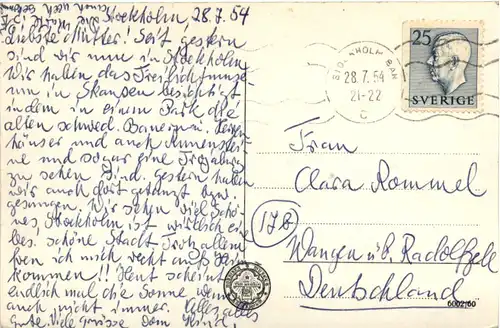 Stockholm, 28.7.54
Liebste Mutter! Seit gestern
sind wir nun in Stockholm
Wir haben das Freilichtmuse-
um in Skansen besichtigt
indem in einem Park die
alten schwed. Bauern u. Herren-
häuser und auch Runenstei-
ne und sogar eine
zu sehen sind. Gestern haben
wir auch dort getanzt bzw.
gesungen. Wir sehen viel Schö-
nes, Stockholm ist wirklich eine
bes. schöne Stadt Trotz allem
freu ich mich recht aufs Heim
kommen!! Heut scheint
endlich mal die Sonne, wenn
auch nicht immer. Alles
Gute. Viele Grüsse Dein
25
SVERIGE
STOCKHOLM BAN
28.7.54
21-22
C
Frau
Clara Rommel
(17B)
Wangen üb. Radolfzell
Deutschland
6002/60